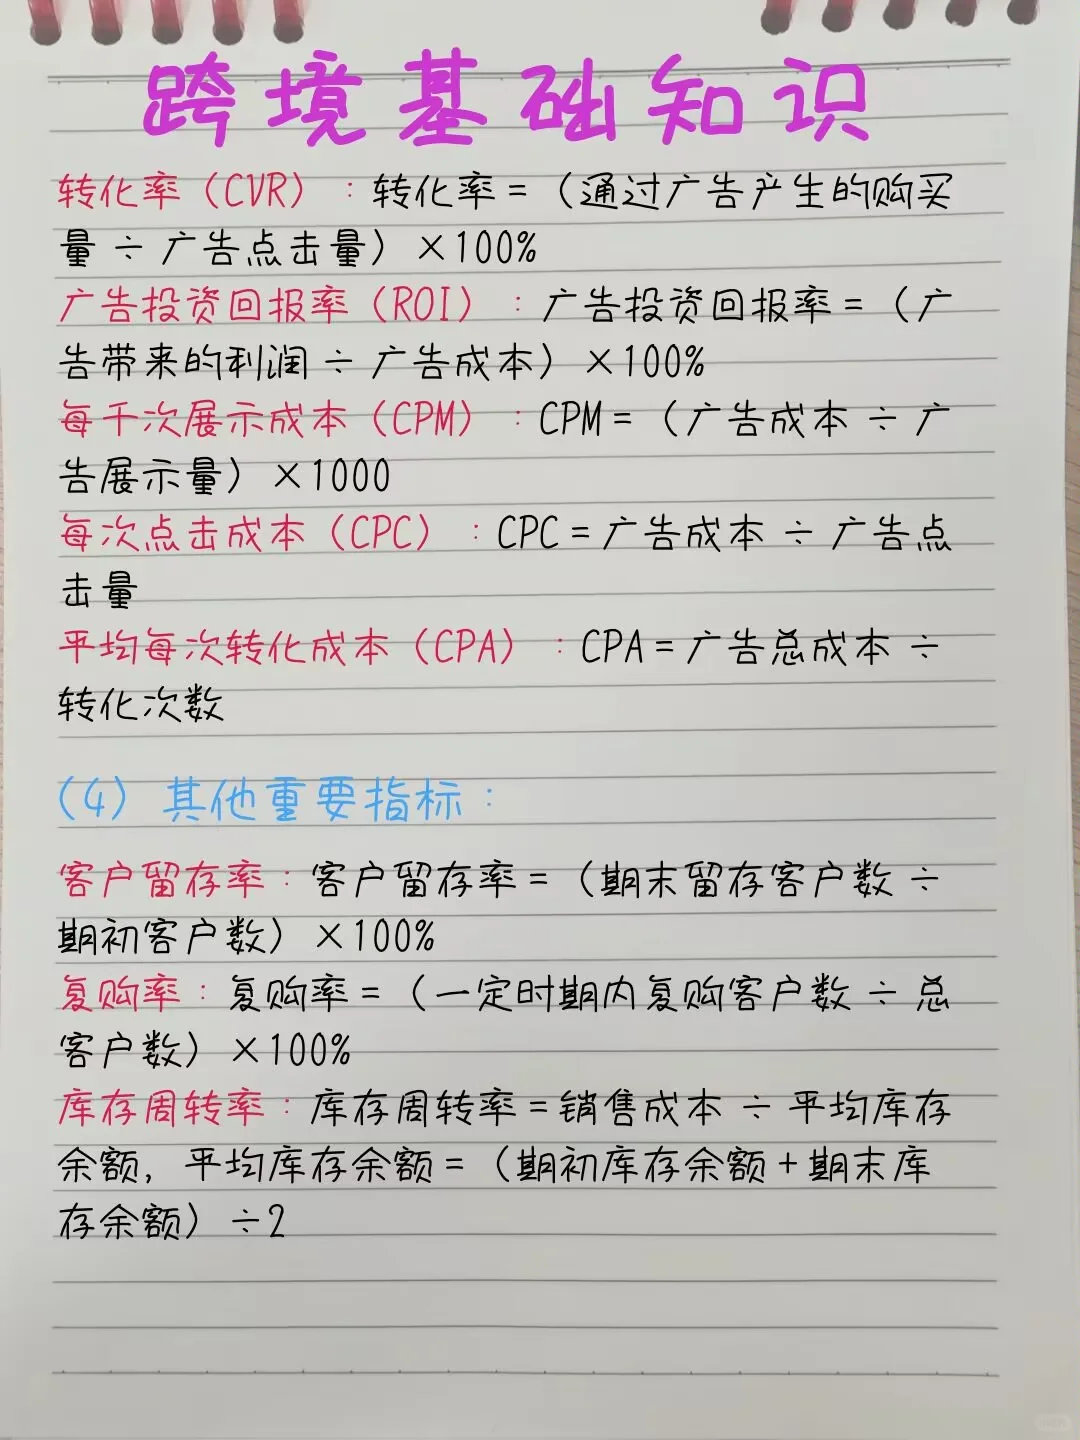 跨境基础知识
转化率（CVR）：转化率=（通过广告产生的购买
量÷广告点击量）×100%
广告投资回报率（ROI）：广告投资回报率=（广
告带来的利润÷广告成本）×100%
每千次展示成本（CPM）：CPM=（广告成本÷广
告展示量）×1000
每次点击成本（CPC）：CPC=广告成本÷广告点
击量
平均每次转化成本（CPA）：CPA=广告总成本÷
转化次数
（4）其他重要指标：
客户留存率：客户留存率=（期末留存客户数÷
期初客户数）×100%
复购率：复购率=（一定时期内复购客户数÷总
客户数）×100%
库存周转率：库存周转率=销售成本÷平均库存
余额，平均库存余额=（期初库存余额+期末库
存余额）÷2